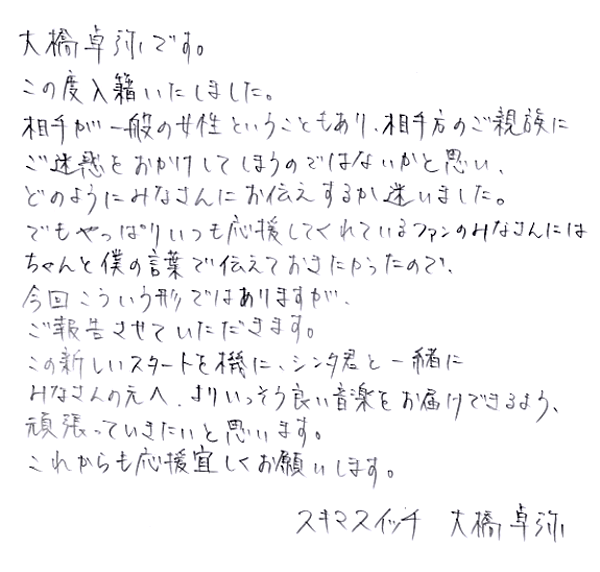 大橋卓弥です。
この度入籍いたしました。
相手が一般の女性ということもあり、相手方のご親族に
ご迷惑をおかけしてしまうのではないかと思い、
どのようにみなさんにお伝えするか迷いました。
でもやっぱりいつも応援してくれているファンのみなさんには
ちゃんと僕の言葉で伝えておきたかったので、
今回こういう形ではありますが、
ご報告させていただきます。
この新しいスタートを機に、シンタ君と一緒に
みなさんの元へ、よりいっそう良い音楽をお届けできるよう、
頑張っていきたいと思います。
これからも応援宜しくお願いします。
スキマスイッチ 大橋卓弥